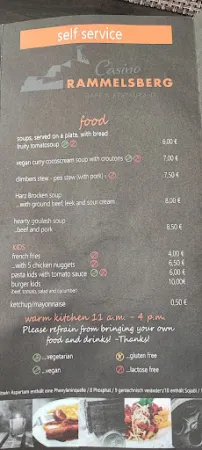 self service
Casino
RAMMELSBERG
food
soups, served on a plate, with bread
fruity tomatosoup 6,00 €
vegan curry-cornscream soup with croutons 7,00 €
climbers stew - pea stew (with pork) - 7,50 €
Harz Brocken soup
...with ground beef, leek and sour cream 8,00 €
hearty goulash soup
...beef and pork 8,50 €
KIDS
french fries 4,00 €
...with 5 chicken nuggets 6,50 €
pasta kids with tomato sauce 6,00 €
burger kids 10,00€
(beef, tomato, salad and cucumber)
ketchup/mayonnaise 0,50 €
warm kitchen 11 a.m. - 4 p.m.
Please refrain from bringing your own
food and drinks! -Thanks!
...vegetarian ...gluten free
...vegan ...lactose free